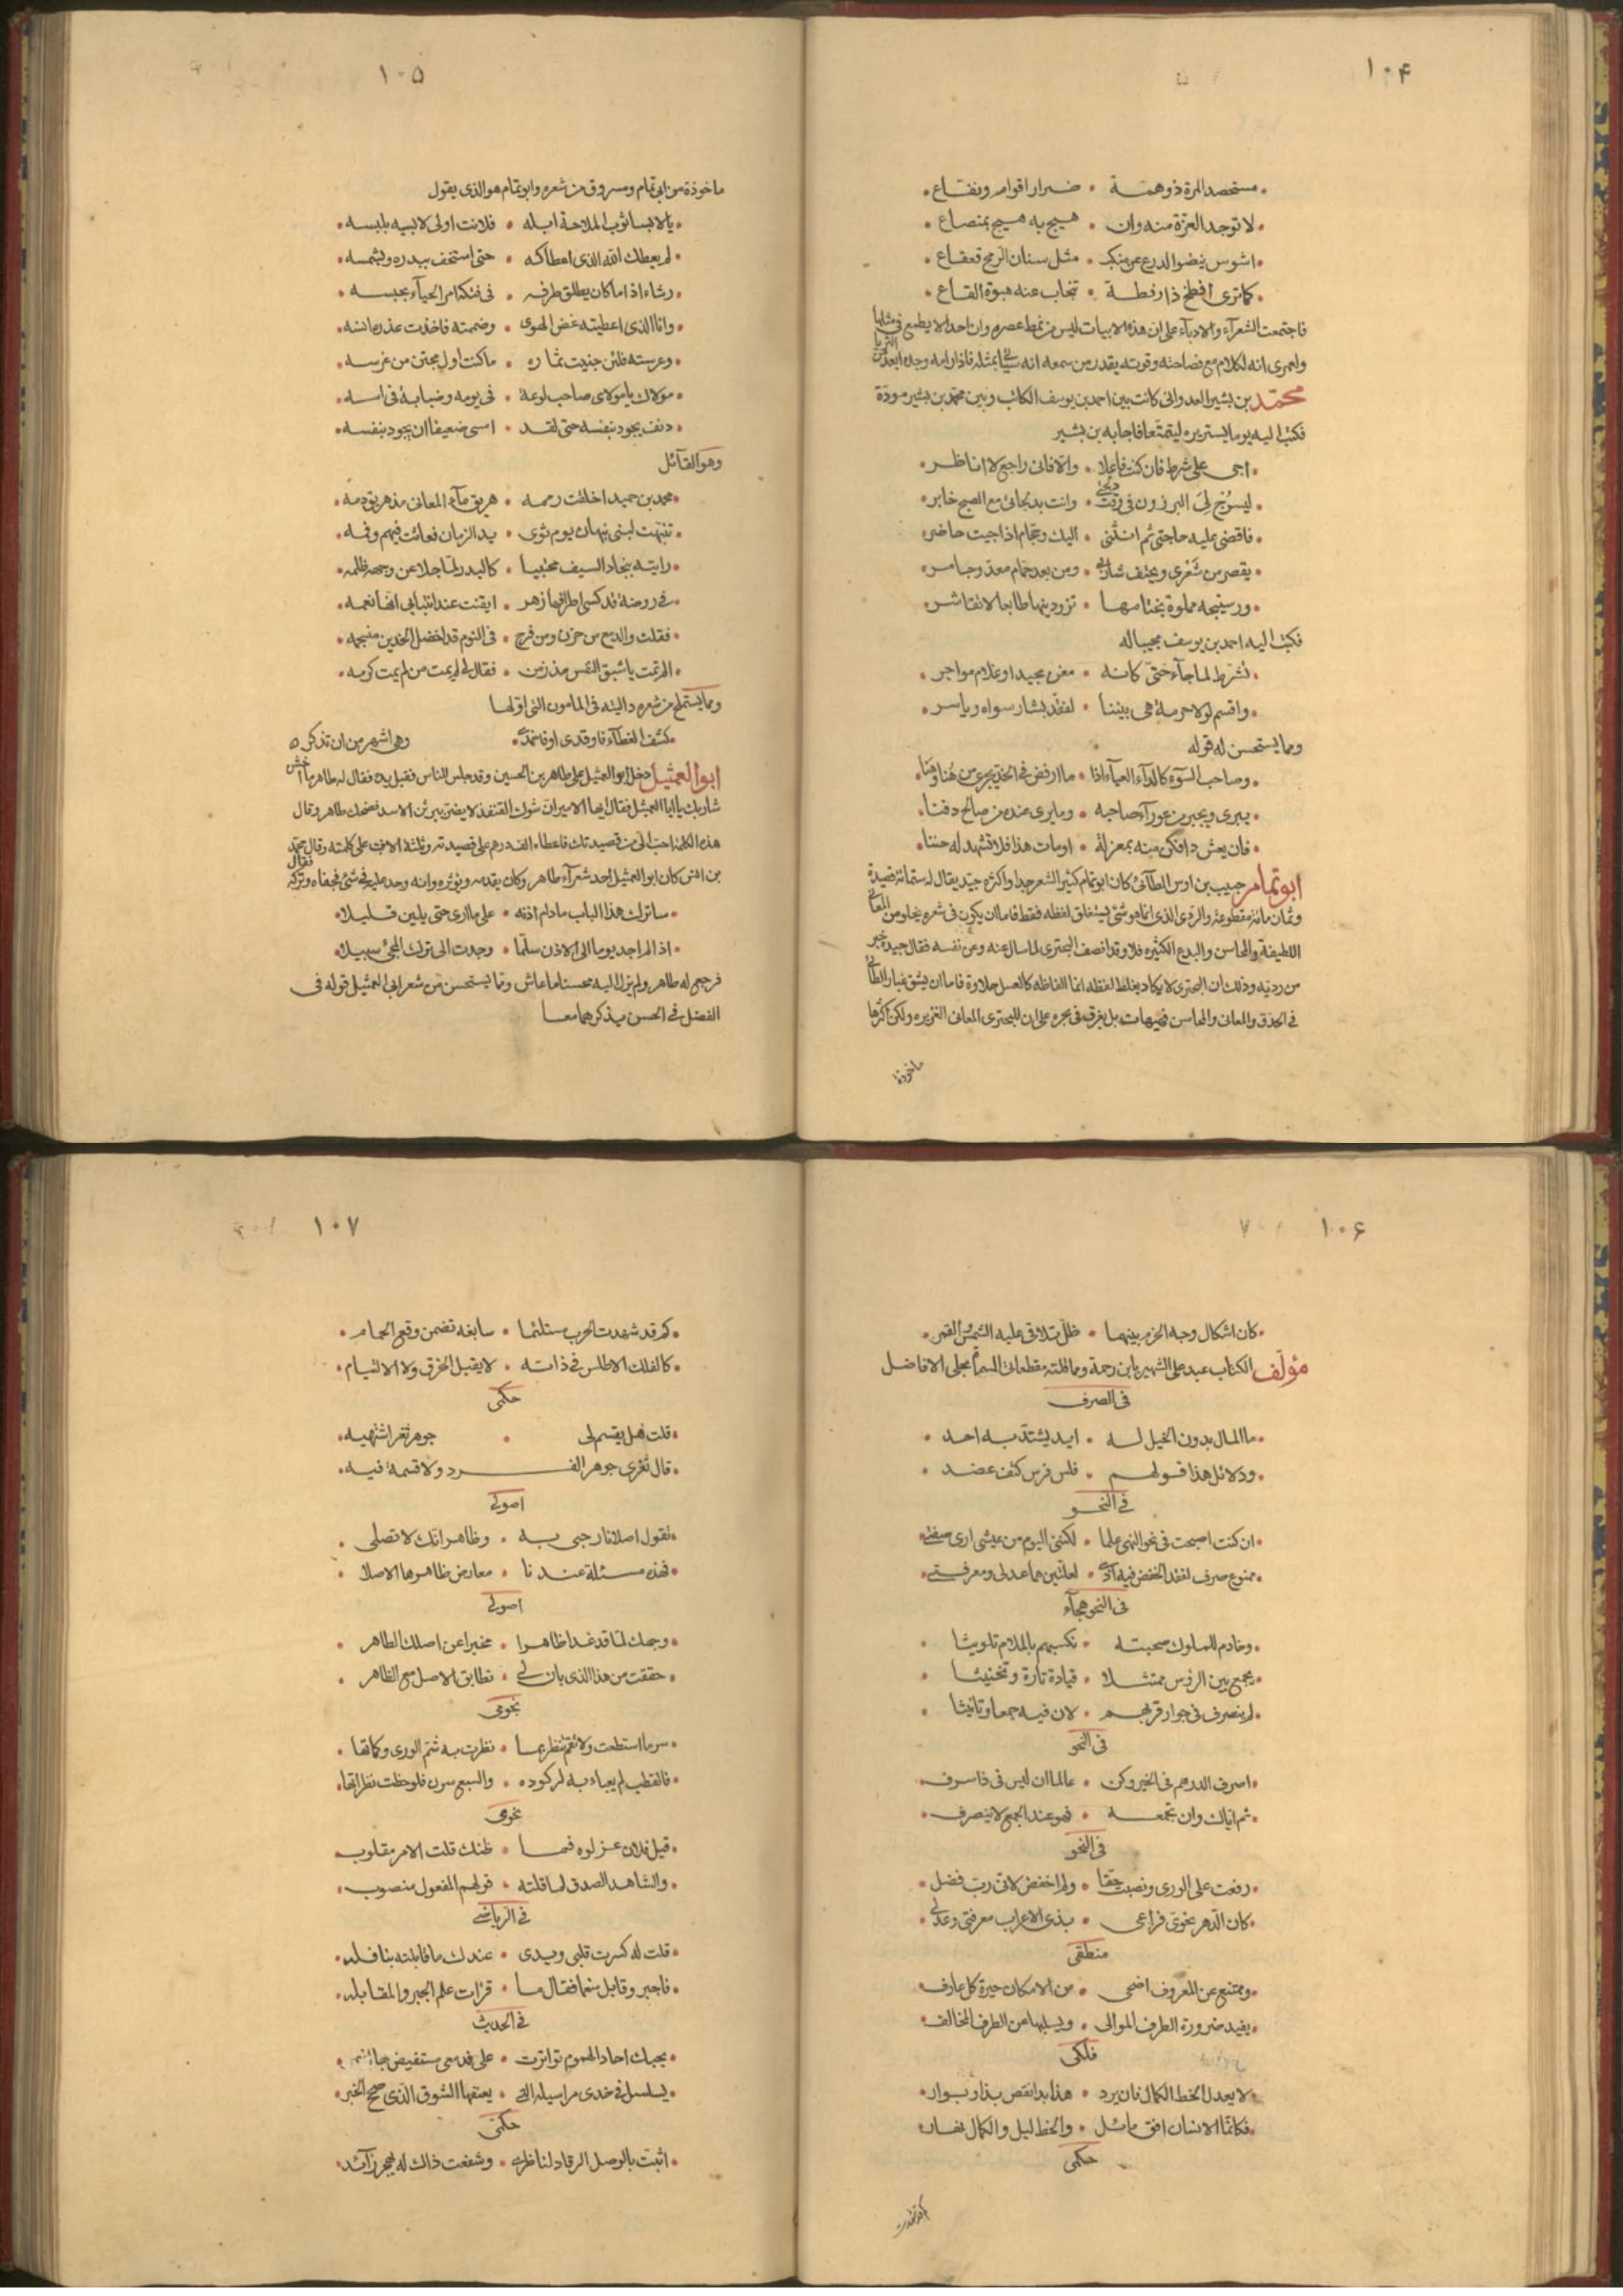 ١٠۴
مستحصد المرة ذو همة • ضرار اقوام ونفاع
لا توجد العزة منه وان • هيج به هيج بمنصاع
اشوس ينضوا الدرع عن منكب • مثل سنان الرمح قعقاع
كما ترى افطخ ذا رفطة • تنجاب عنه هبوة القاع
فاجتمعت الشعرآء والادبآء على ان هذه الابيات ليس من نمط عصره وان احدا لا يطمع في مثلها
ولعمرى انه لكلام مع فصاحته وقوته يقدر من سمعه انه سيأتي بمثله فاذا رامه وجده ابعد من الثريا
محمد بن بشير العدوانى كانت بين احمد بن يوسف الكاتب وبين محمد بن بشير مودة
فكتب اليه يوما يستزيره ليتمتعا فاجابه بن بشير
اجى على شرط فان كنت فاعلا • والا فانى راجع لا اناظر
ليسرج لى البرزون فى وقت • وانت بدلجاتى مع الصبح خابر
فاقضى عليه حاجتى ثم انثنى • اليك وحجام اذا جيت حاضر
يقصر من شعرى ويحتف شاربى • ومن بعد حمام معد وجامر
ورستيجه مملوة بختامها • تزودينها طابعا لا تقاشر
فكتب اليه احمد بن يوسف مجيبا له
نشرط لما جآء حتى كانه • مغن مجيد او غلام مواجر
واقسم لولا حرمة هى بيننا • لفقد بشار سواه وياسر
ومما يستحسن له قوله
وصاحب السوء كالدآء العيآء اذا • ما ارفض فى الخد يجرى من هنا وهنا
يبرى ويخبر من عورآء صاحبه • وما يرى عنده من صالح دفنا
فان يعش ذا فكن منه بمعزلة • او مات هذا فلا تشهد له جننا
ابو تمام حبيب بن اوس الطآئى كان ابو تمام كثير الشعر جدا واكثره جيد يقال له ستمائة قصيدة
وثمان مائة مقطوعة والردى الذى له انما هو شئ يستغلق لفظه فقط فاما ان يكون فى شعره يخلو من المعانى
اللطيفة والمحاسن والبدع الكثيره فلا وقد انصف البحترى لما سال عنه وعن نفسه فقال جيده خير
من رديه وذلك ان البحترى لا يكاد يغلظ لفظه انما الفاظه كالعسل حلاوة فاما ان يشق غبار الطائى
فى الحذق والمعانى والمحاسن فهيهات بل يغرق فى بحره على ان للبحترى المعانى الغزيره ولكن اكثرها
ماخوذة
١٠۵
ماخوذة من ابى تمام ومسروق من شعره وابو تمام هو الذى يقول
يا لابسا ثوب الملاحة ابله • فلانت اولى لابسيه بلبسه
لم يعطك الله الذى اعطاكه • حتى استخف ببدره وبشمسه
رشاء اذا ما كان يطلق طرفه • فى فتكه امر الحيآء بحبسه
وانا الذى اعطيته غض الهوى • وضممته فاخذت عذره انسه
وغرسته فلئن جنيت ثماره • ما كنت اول مجتن من غرسه
مولاك يا مولاى صاحب لوعة • فى يومه وصبابة فى امسه
دنف يجود بنفسه حتى لقد • امسى ضعيفا ان يجود بنفسه
وهو القآئل
محمد بن حميد اخلقت رممه • هريق مآء المعالى مذ هريق دمه
تنبهت لبنى نبهان يوم ثوى • يد الزمان فعاثت فيهم وفمه
رايته بنجاد السيف محتبيا • كالبدر لما جلا عن وجهه ظلمه
فى روضة قد كسى اطرافها زهر • ايقنت عند انتباهى انها نعمه
فقلت والدمع من حزن ومن فرح • فى النوم قد اخضل الخدين منسجمه
الم تمت يا شقيق النفس مذ زمن • فقال لى لم يمت من لم يمت كرمه
ومما يستملح من شعره داليته فى المامون التى اولها
كشف الغطآء فاوقدى او فاخمدى • وهى اشهر من ان تذكر
ابو العميثل دخل ابو العميثل على طاهر بن الحسين وقد جلس للناس فقبل يده فقال له طاهر ما اخشن
شاربك يا ابا العميثل فقال ايها الامير ان شوك القنفذ لا يضر ببرثن الاسد فضحك طاهر وقال
هذه الكلمة احب الى من قصيدتك فاعطاه الف درهم على قصيدته وثلثة الاف على كلمته وقال محمد
بن كان ابو العميثل احد شعرآء طاهر وكان يقدمه ويؤثره وانه وجد عليه فى شئ فجفاه وتركه فقال
ساترك هذا الباب ما دام اذنه • على ما ارى حتى يلين قليلا
اذا لم اجد يوما الى الاذن سلما • وجدت الى ترك المجئ سبيلا
فرجع له طاهر ولم يزل اليه محسنا ما عاش ومما يستحسن من شعر ابى العميثل قوله فى
الفضل فى الحسن يذكرهما معا
١٠۶
كان اشكال وجه الحزم بينهما • ظل تلاقى عليه الشمس والقمر
مؤلف الكتاب عبد على الشهير بابن رحمة ومما قلته مقطعاتى المسماة بمجلى الافاضل
فى الصرف
ما المال بدون الخيل له • ايد يشتد به احد
ودلائل هذا قولهم • فلس فرس كتف عضد
فى النحو
ان كنت اصبحت فى نحو النهى علما • لكننى اليوم من عيشى ارى صفتى
ممنوع صرف لفقد الخفض فيه اذى • لعلتين هما عدلى ومعرفتى
فى النحو هجآء
وخادم للملوك صحبته • تكسبهم بالملام تلويثا
يجمع بين الروس ممتثلا • قيادة تارة وتخنيثا
لم ينصرف فى جوار قربهم • لان فيه جمعا وتانيثا
فى النحو
اصرف الدرهم فى الخير وكن • عالما ان ليس فى ذا سرف
ثم اياك وان تجمعه • فهو عند الجمع لا ينصرف
فى النحو
رفعت على الورى ونصبت حقا • ولم اخفض لانى رب فضل
كان الدهر نحوى فراعى • بذى الاعراب معرفتى وعدلى
منطقى
وممتنع عن المعروف اضحى • من الامكان حيرة كل عارف
يفيد ضرورة الطرف الموالى • ويسلبها عن الطرف المخالف
فلكى
لا يعدل الخط الكمال فان يرد • هذا بدا نقص بذا وبوار
فكانما الانسان افق مائل • والخط ليل والكمال نهار
حكمى
كم قد شهدت
١٠٧
كم قد شهدت الحرب مستلئما • سابغة تضمن وقع الحمام
كالفلك الاطلس فى ذاته • لا يقبل الخرق ولا الالتيام
حكمى
قلت هل يقسم لى • جوهر ثغر اشتهيه
قال ثغرى جوهر الفرد ولا قسمة فيه
اصولى
تقول اصلا نار جبى به • وظاهر انك لا تصلى
فهذه مسئلة عندنا • معارض ظاهرها الاصلا
اصولى
وجهك لما قد غدا ظاهرا • مخبرا عن اصلك الطاهر
حققت من هذا الذى بان لى • تطابق الاصل مع الظاهر
نجومى
سر ما استطعت ولا تقم تنظر بها • نظرت به شم الورى وكماتها
فالقطب لم يعباء به لركوده • والسبع سرن فلوحظت نظراتها
نحوى
قيل فلان عزلوه فما • ظنك قلت الامر مقلوب
والشاهد الصدق لما قلته • قولهم المفعول منصوب
فى الرياضى
قلت له كسرت قلبى ويدى • عندك ما قابلته بنافله
فاجبر وقابل منعما فقال ما • قرات علم الجبر والمقابله
فى الحديث
بحبك احاد الهموم تواترت • على قدمى مستفيض
يسلسل فى خدى مراسيله التى • يعنعنها الشوق الذى صح الخبر
حكمى
اثبت بالوصل الرقاد لناظرى • وشفعت ذاك له بهجر زآئد